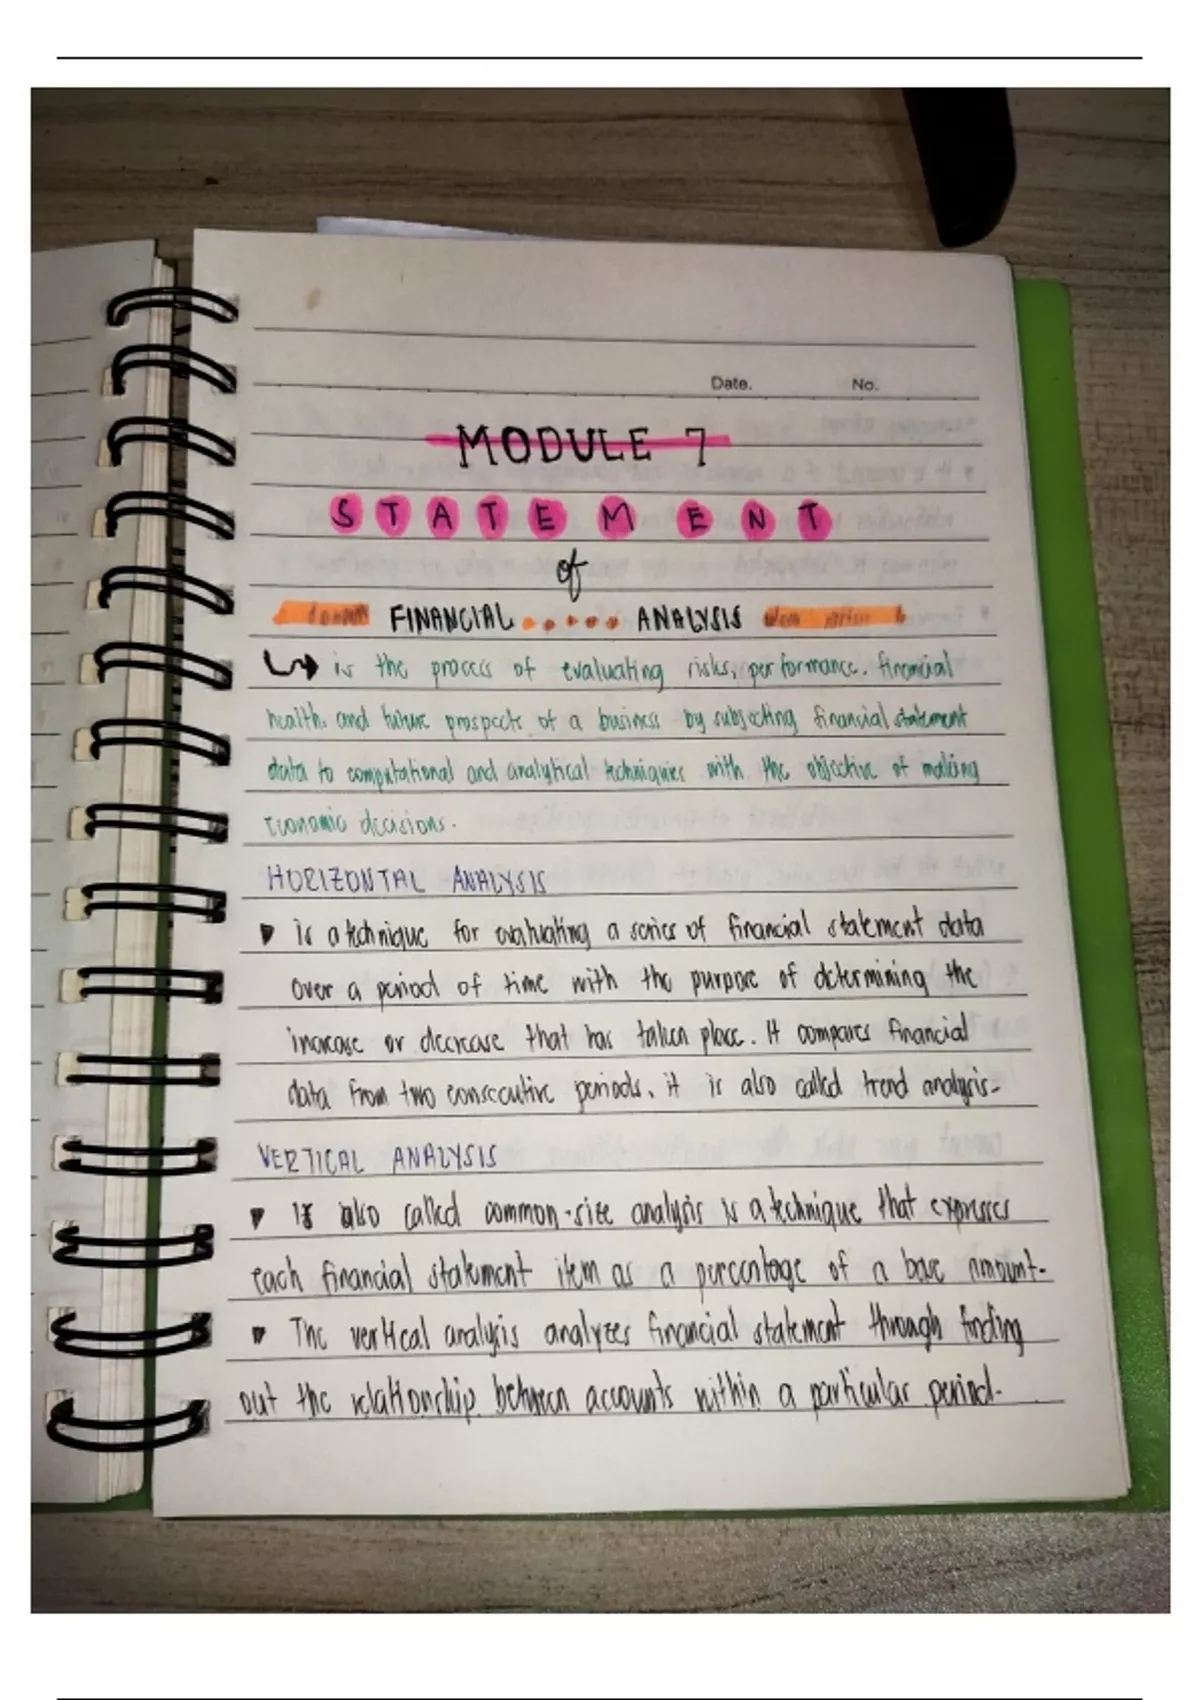 Date. No.
MODULE 7
STATEMENT
of
FINANCIAL ANALYSIS
is the process of evaluating risks, performance, financial
health, and future prospects of a business by subjecting financial statement
data to computational and analytical techniques with the objective of making
economic decisions.
HORIZONTAL ANALYSIS
is a technique for evaluating a series of financial statement data
over a period of time with the purpose of determining the
increase or decrease that has taken place. It compares financial
data from two consecutive periods, it is also called trend analysis.
VERTICAL ANALYSIS
Is also called common-size analysis is a technique that expresses
each financial statement item as a percentage of a base amount.
The vertical analysis analyzes financial statement through finding
out the relationship between accounts within a particular period.